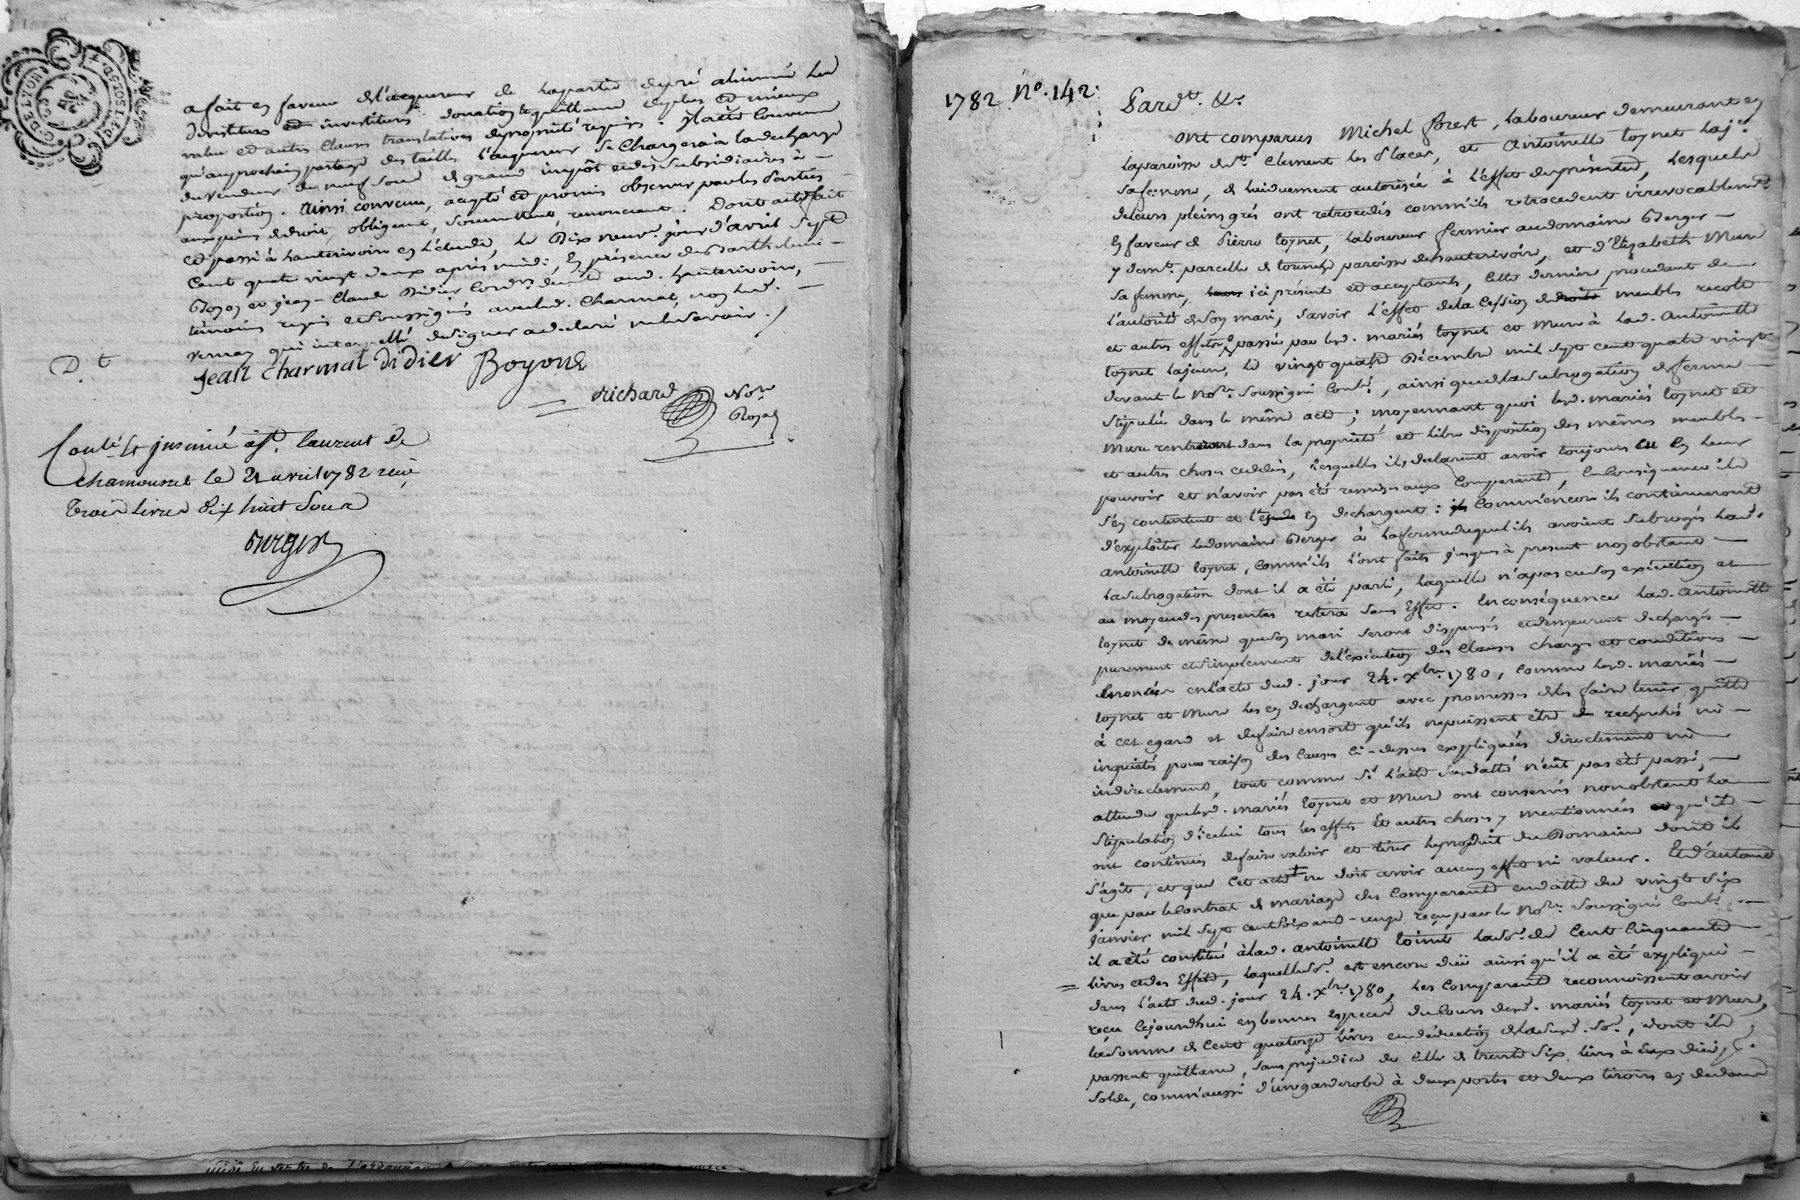 G. DE LYON
a fait en faveur de l'acquereur de la partie de pré alienée les
devestiture et investiture donation et quittance de plus et mieux
value et autres clauses translatives de propriété requises : il a été convenu
qu'au prochain partage des tailles l'acquereur se chargera à la decharge
du vendeur de neuf sous de grand impôt et des subsidiaires à -
proportion. Ainsi convenu, accepté et promis observer par les parties -
aux peines de droit, obligeant, soumettant, renonceant. Dont acte fait
et passé à hauterivoire en l'étude, le Dix neuv.e jour d'avril sept
cent quatre vingt deux après midi, en présence de Barthelemi -
Boyon et Jean-Claude Didier dud. hauterivoire, -
témoins requis et soussignés avec led. Charmat, non led.
Vernay qui interpellé de signer a declaré ne le savoir. /
D. t
Jean Charmat Didier Boyond
Richard No.re
Royal
Conlé & insinué à St. laurent de
Chamousset le 21 avril 1782 reçu
trois livres dix huit sous
1782 No. 142.
Pard.t &c.
ont comparus Michel forest, laboureur demeurant en
la paroisse de St. Clement les Places, et Antoinette loynet laj.e
sa femme, de lui duement autorisée à l'effet des présentes, lesquels
de leurs pleins grés ont retrocedés comm'ils retrocedent irrevocablem.t
en faveur de Pierre loynet, laboureur fermier au domaine Berger -
y dem.t parcelle de tournesy paroisse de hauterivoire, et d'Elizabeth Mure
sa femme, ici présents et acceptants, cette derniere procedant de
l'autorité de son mari, savoir l'effet de la cession de meubles recolte
et autres effets passée par lesd. mariés loynet et Mure à lad. Antoinette
loynet lajeune, le vingt quatre Décembre mil sept cent quatre vingt
devant le No.re soussigné Conlé, ainsi que de la subrogation de ferme -
stipulée dans le même acte ; moyennant quoi lesd. mariés loynet et
Mure rentreront dans la propriété et libre disposition des mêmes meubles -
et autres choses cedées, lesquelles ils declarent avoir toujours eu en leur
pouvoir et n'avoir pas été remises aux Comparants, En consequence ils
s'en contentent et en dechargent : Comm'encore ils continueront
d'exploiter led domaine Berger à la ferme duquel ils avoient subrogés lad.
Antoinette loynet, comm'ils l'ont faits jusques à present nonobstant -
la subrogation dont il a été parlé, laquelle n'a pas eu son exécution et
au moyen des presentes restera sans Effet. En conséquence lad. Antoinette
loynet de même que son mari seront dispensés et demeurent dechargés -
purement et simplement de l'exécution des clauses charges et conditions -
énoncées en l'acte dud. jour 24. xbre. 1780, comme lesd. mariés -
loynet et Mure les en dechargent avec promesses de les faire tenir quittes
à cet egard et de faire ensorte qu'ils ne puissent être de recherchés ni -
inquiétés pour raison des causes ci-dessus expliquées directement ni -
indirectement, tout comme si l'acte susdatté n'eût pas été passé, -
attendu que lesd. mariés loynet et Mure ont conservés nonobstant la
stipulation d'icelui tous les effets et autres choses y mentionnées qu'ils -
ont continués de faire valoir et tirer le produit du Domaine dont il
s'agit, et que cet acte ne doit avoir aucun effet ni valeur. Et d'autant
que par le contrat de mariage des Comparants en datte du vingt six
janvier mil sept cent soixante-onze reçu par le No.re soussigné Conlé -
il a été constitué à lad. Antoinette loinet la so.e de cent cinquante
livres et des Effets, laquelle so.e est encore düe ainsi qu'il a été expliqué -
dans l'acte dud. jour 24. xbre 1780, les Comparants reconnoissent avoir
reçu cejourd'hui en bonnes especes du cours desd. mariés loynet et Mure,
la somme de cent quatorze livres en déduction de la susd. so.e, dont ils
passent quittance, sans prejudice de celle de trente six livres à eux düe, p.
solde, comm'aussi d'une garderobe à deux portes et deux tiroirs en dedans